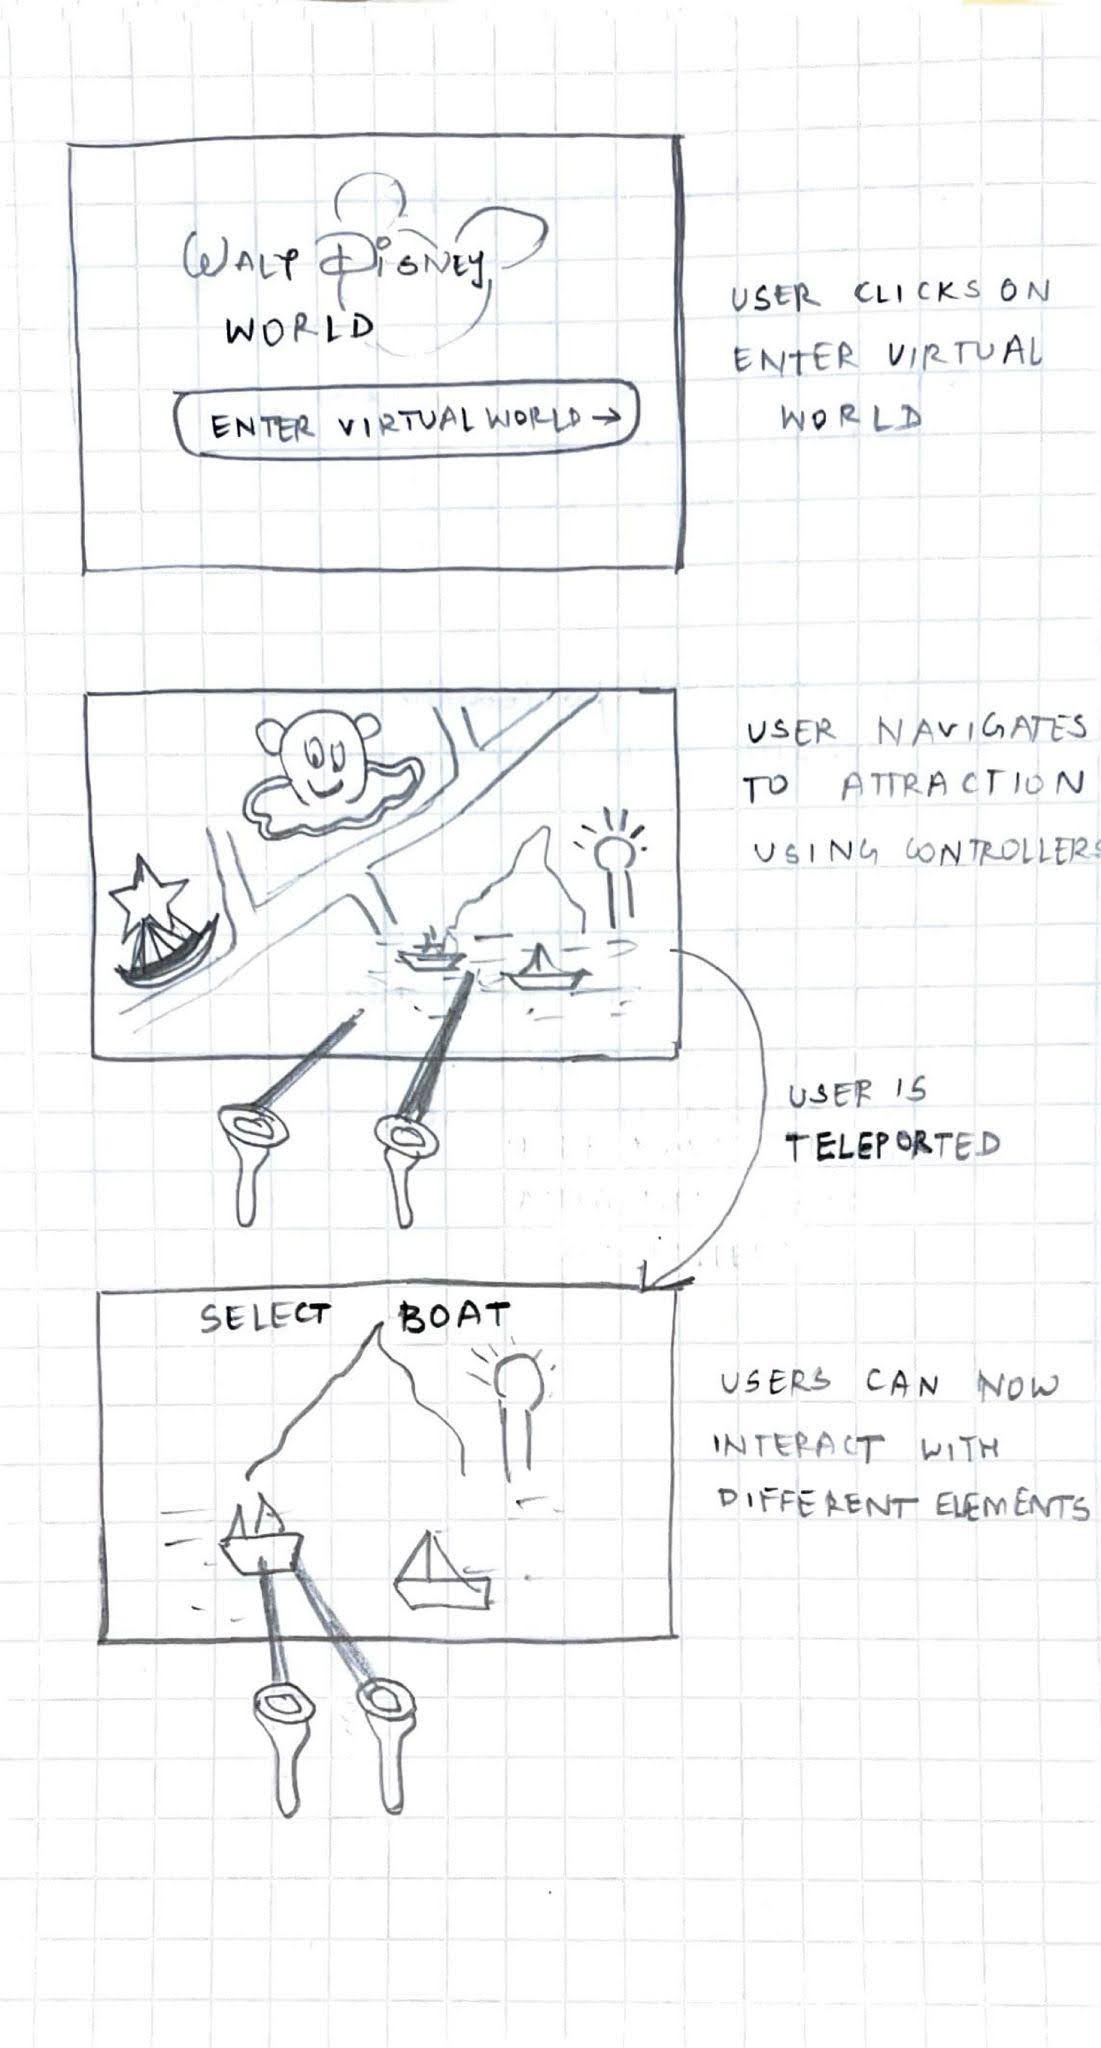 WALT DISNEY
WORLD
ENTER VIRTUAL WORLD →
USER CLICKS ON
ENTER VIRTUAL
WORLD
USER NAVIGATES
TO ATTRACTION
USING CONTROLLERS
USER IS
TELEPORTED
SELECT BOAT
USERS CAN NOW
INTERACT WITH
DIFFERENT ELEMENTS